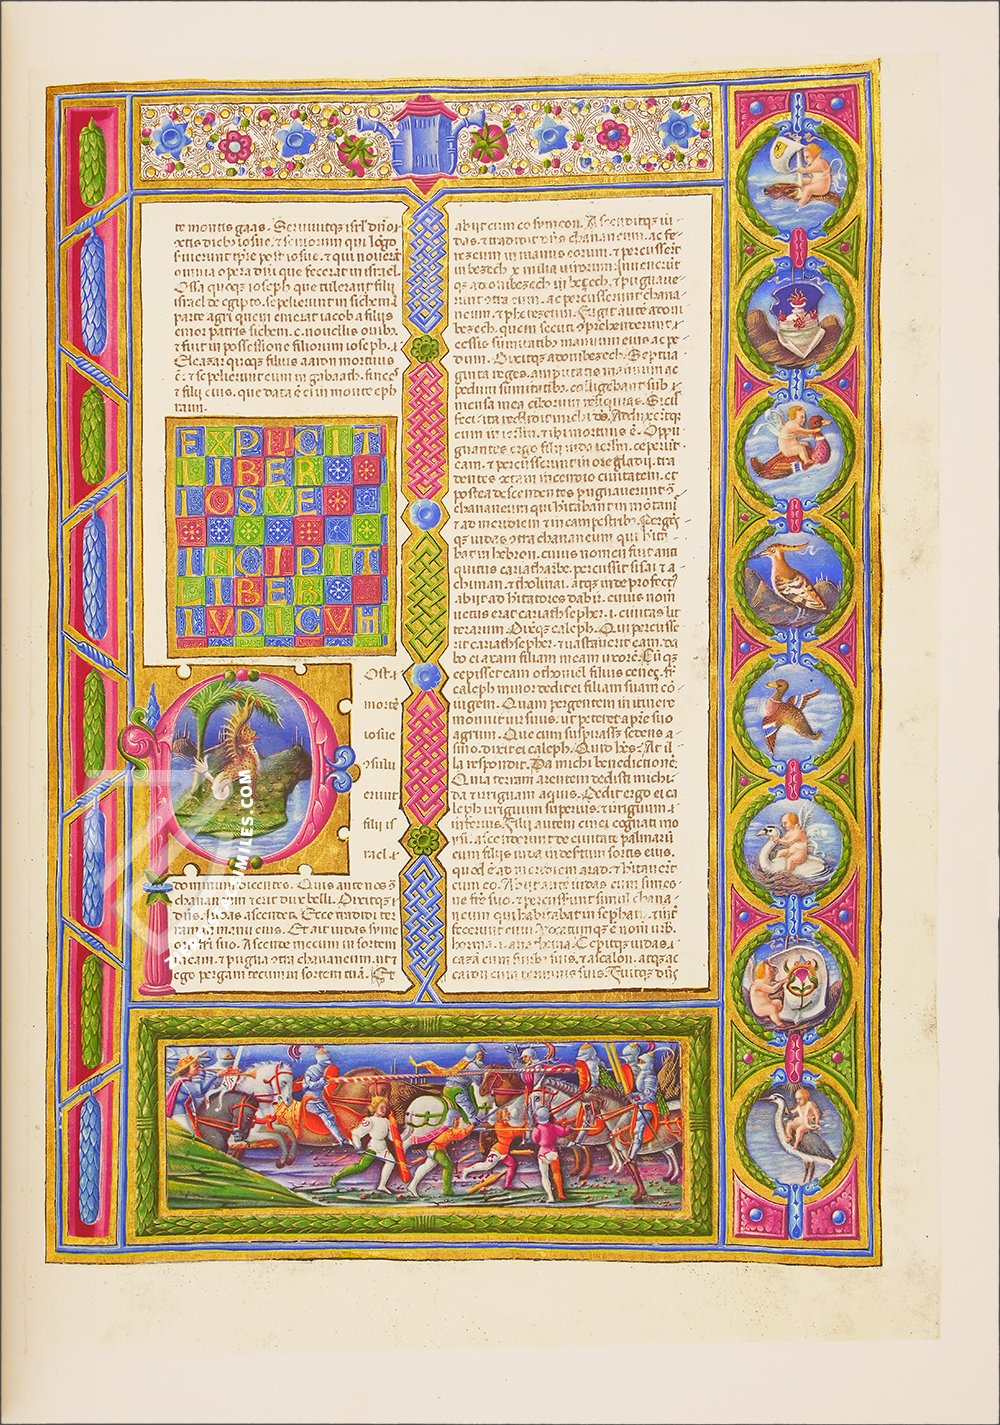 te montis gaas. Servivitqz isrl dno
omnia opera dni que fecerat in israel.
Ossa quoqz ioseph que tulerant filii
israel de egipto. sepelierunt in sichem
parte agri quem emerat iacob a filiis
emor patris sichem. c. novellis ovibz.
t fuit in possessione filiorum ioseph.
Eleazar quoqz filius aaron mortuus
t filii eius. que data e ei in monte eph
raim.
EXPLICIT
LIBER
IOSVE
INCIPIT
LIBER
IVDICVM
Post
morte
iosue
filii is
rael
dominum dicentes. Quis ante nos
chananeum t erit dux belli. Dixitqz
dns. Iudas ascendet. Ecce tradidi ter
ram in manu eius. Et ait iudas simeo
fri suo. Ascende mecum in sortem
meam. t pugna contra chananeum. ut t
ego pergam tecum in sortem tuam. Et
abiit cum eo symeon. Ascenditqz iu
das. t tradidit dns chananeum. ac fe
rezeum in manus eorum. t percusserunt
in bezech x milia virorum. Inveneruntqz
adonibezech in bezech. t pugnave
runt contra eum. ac percusserunt chana
neum t pherezeum. Fugit autem adoni
bezech. quem secuti comprehenderunt
cesis summitatibz manuum eius ac pe
dum. Dixitqz adonibezech. Septua
ginta reges. amputatis manuum ac
pedum summitatibz. colligebant sub
mensa mea ciborum reliquias. Sicut
feci ita reddidit michi ds. Adduxeruntqz
eum in ierlm. t ibi mortuus e. Oppu
gnantes ergo filii iuda ierlm. ceperunt
eam. t percusserunt in ore gladii. tra
dentes cunctam incendio civitatem. et
postea descendentes pugnaverunt
chananeum qui habitabat in montanis
t ad meridiem t in campestribz. Pergens
qz iudas contra chananeum qui habita
bat in hebron. cuius nomen fuit anti
quitus cariatharbe. percussit sisai t a
chiman. t tholmai. atqz inde profectus
abiit ad habitatores dabir. cuius nomen
vetus erat cariathsepher. i. civitas lit
terarum. Dixitqz caleph. Qui percusse
rit cariathsepher. t vastaverit eam. da
bo ei axam filiam meam uxorem. Cumqz
cepisset eam othoniel filius cenez. fr
caleph minor dedit ei filiam suam co
niugem. Quam pergentem in itinere
monuit vir suus. ut peteret a patre suo
agrum. Que cum suspirasset sedens a
sino. dixit ei caleph. Quid habes. At il
la respondit. Da michi benedictionem.
Quia terram arentem dedisti michi
da t irriguam aquis. Dedit ergo ei ca
leph irriguum superius. t irriguum
inferius. Filii autem cinei cognati mo
ysi. ascenderunt de civitate palmarum
cum filiis iuda in desertum sortis eius.
quod e ad meridiem arad. t habitaverunt
cum eo. Abiit autem iudas cum simeo
ne fre suo. t percusserunt simul chana
neum qui habitabat in sephath.
horma. Cepitqz iudas
gazam cum finibz suis. t ascalon. atqz ac
caron cum terminis suis. Fuitqz dns
WWW.FACSIMILES.COM